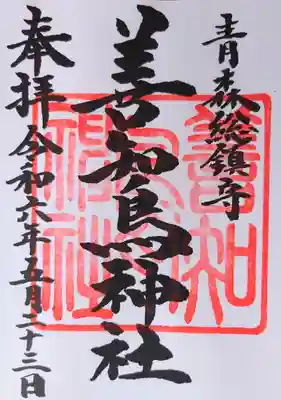 青森総鎮守
善知鳥神社
奉拝
令和六年五月二十三日
善知鳥神社